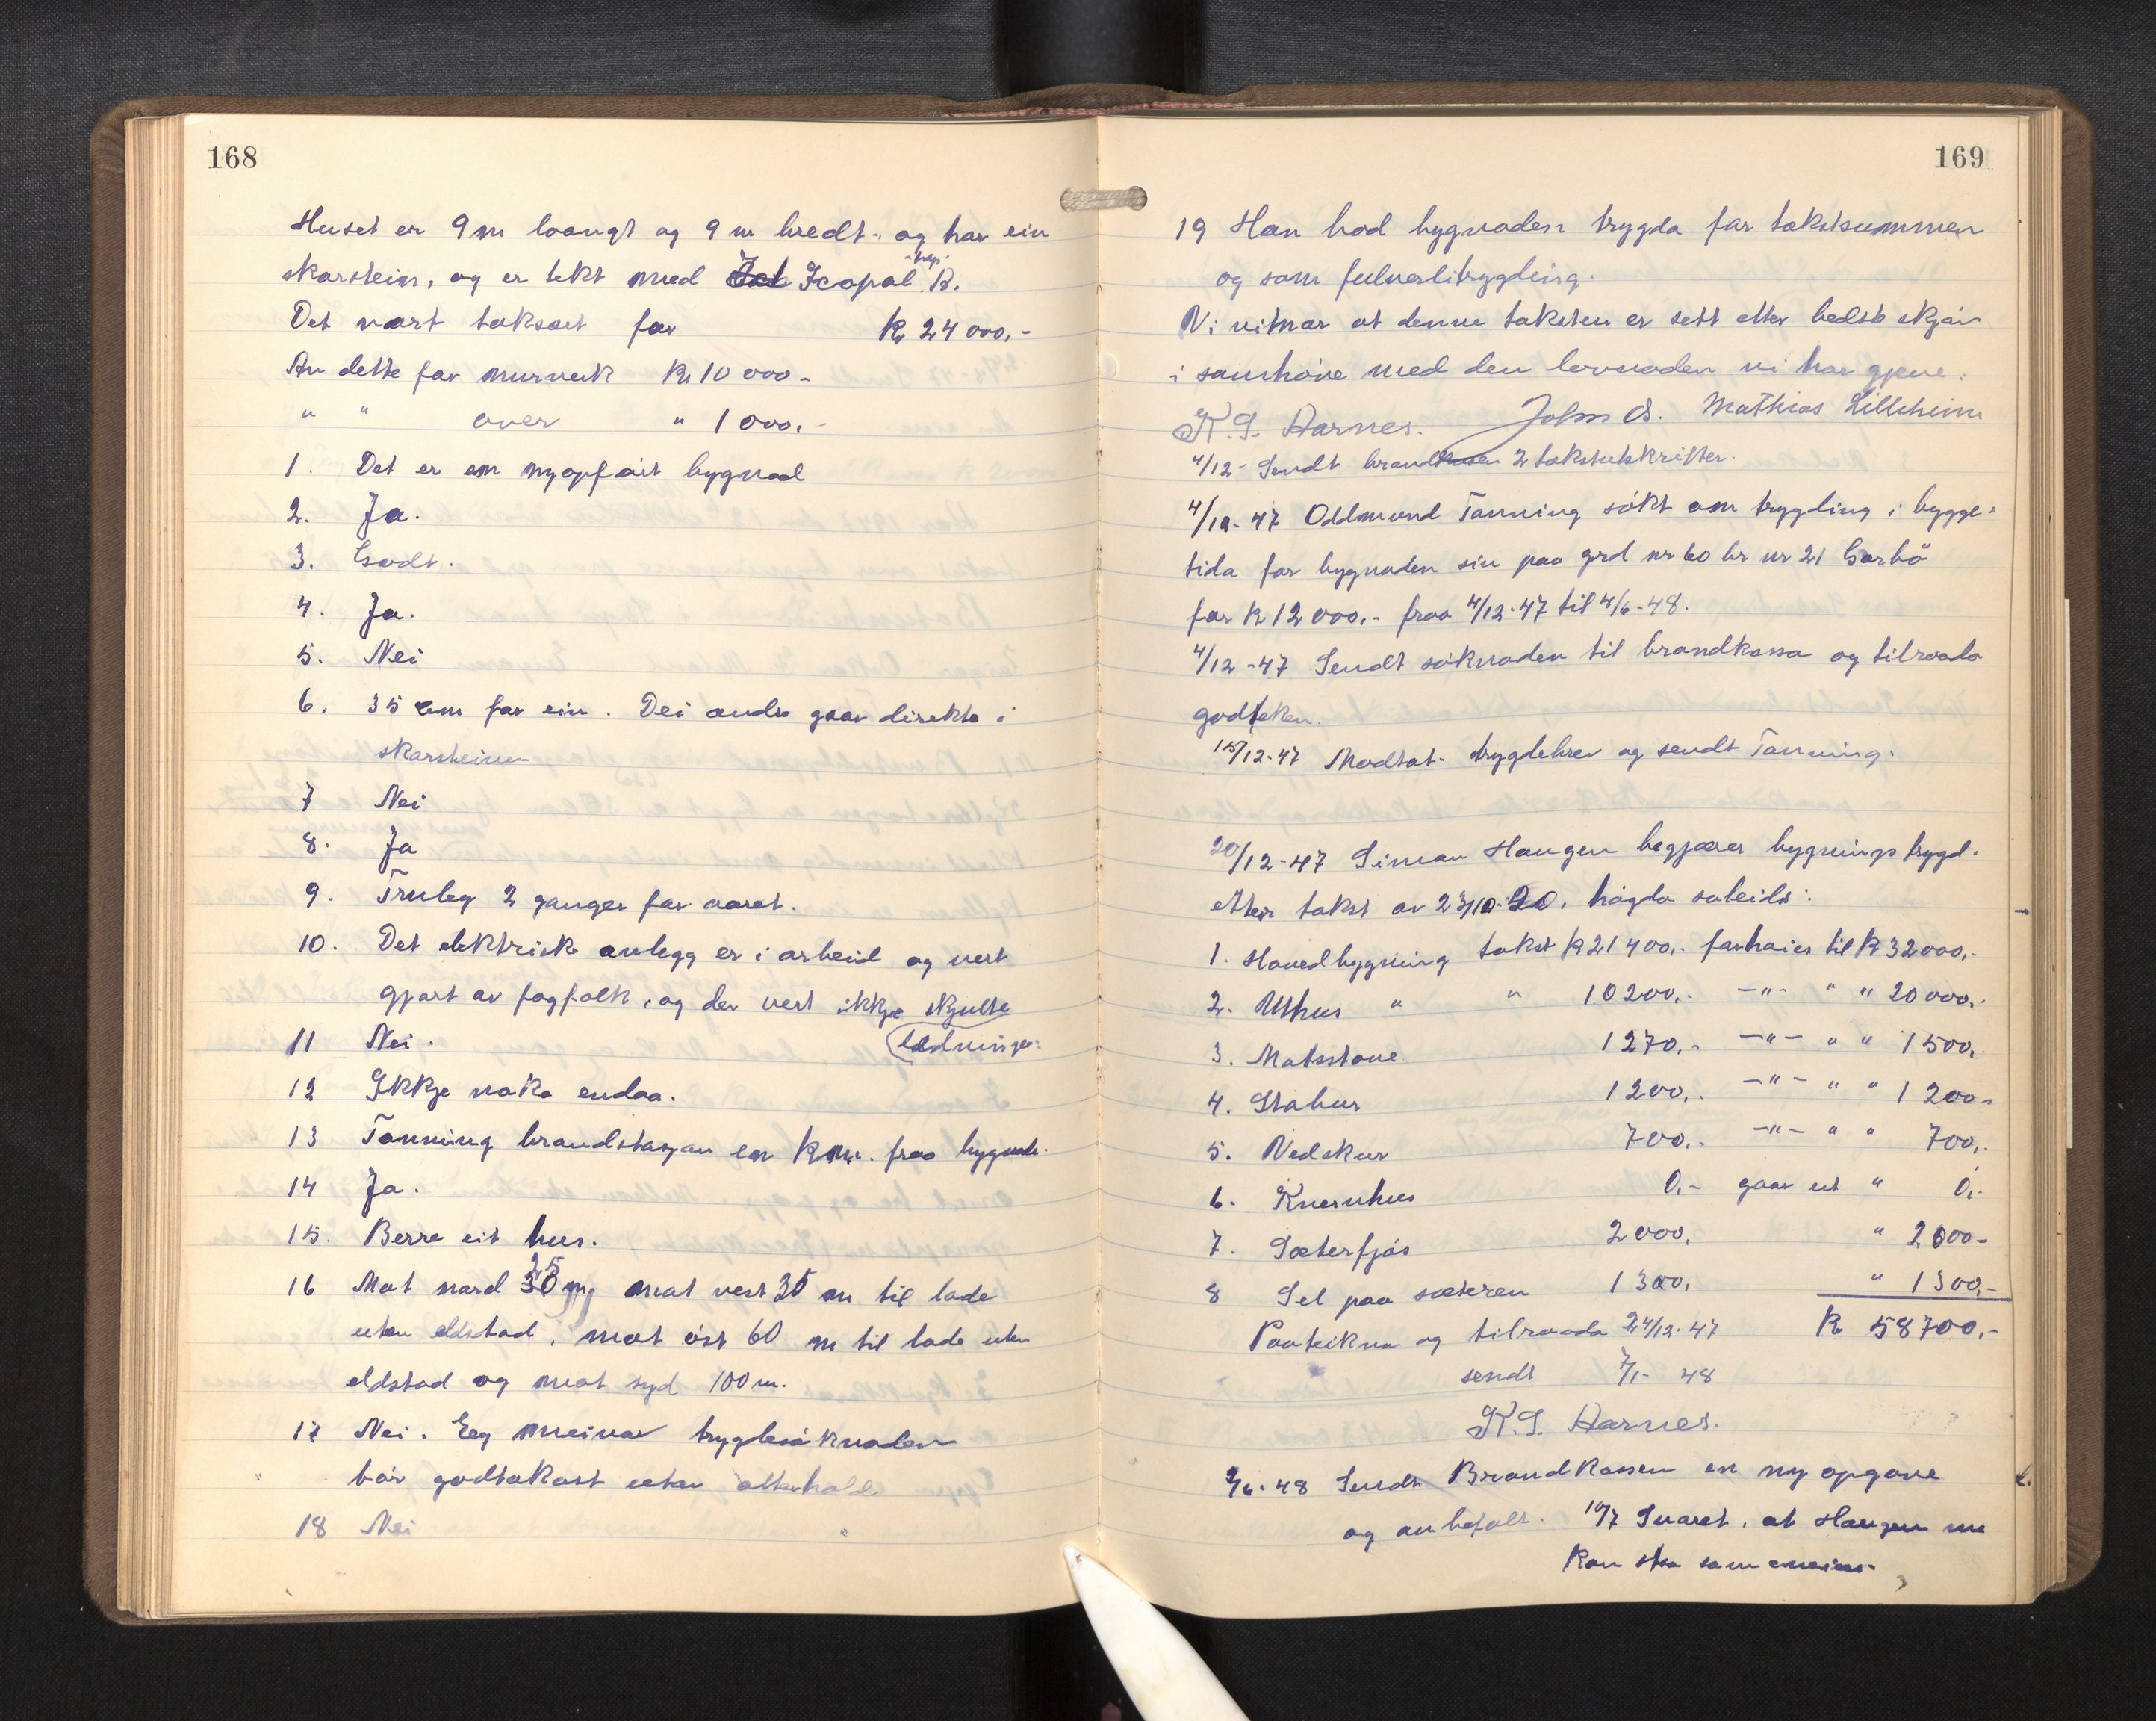 168
Huset er 9 m laangt og 9 m bredt. og har ein
skorstein, og er tekt med Icopal papp A.
Det vart taksert for kr 24 000,-
Av dette for murverk Kr 10 000-
" " over " 1 000,-
1. Det er em nyopført bygnad
2. Ja.
3. Godt.
4. Ja.
5. Nei
6. 35 cm for ein. Dei andre gaar direkte i
skorsteinen
7 Nei
8. Ja
9. Truleg 2 ganger for aaret.
10. Det elektrisk anlegg er i arbeid og vert
gjort av fagfolk, og der vert ikkje skjulte
11 Nei. ledninger.
12 Ikkje noko endaa.
13 Tanning brandstasjon en km. fraa bygnde.
14 Ja.
15. Berre eit hus.
16 Mot nord 25 30 m, mot vest 35 m til lade
uten eldstad, mot øst 60 m til lade uten
eldstad og mot syd 100 m.
17 Nei. Eeg meinar trygdesøknaden
bør godtakast uten atterhald
18 Nei
169
19 Han bad bygnaden trygda for takstsummen
og som fulverditrygding.
Vi vitnar at denne taksten er sett etter bedste skjøn
i samhøve med den lovnaden vi har gjeve.
K. S. Aarnes. John O. Mathias Lillheim
4/12- Sendt brandkasen 2 takstutskrifter.
4/12-47 Oddmund Tanning søkt om trygding i bygge-
tida for bygnaden sin paa grd nr 60 br nr 21 Garbö
for kr 12 000,- fraa 4/12-47 til 4/6-48.
4/12-47 Sendt søknaden til brandkassa og tilraada
godteken.
15/12-47 Modtat trygdebrev og sendt Tanning.
20/12-47 Simon Haugen begjærer bygnings trygd.
etter takst av 23/10-20, høgda saleids:
1. Hovedbygning takst kr 21 400,- forhøies til kr 32 000,-
2. Uthus " " 10 200,- -"- " " 20 000,-
3. Matsstove 1 270,- -"- " " 1 500,-
4. Stabur 1 200,- -"- " " 1 200-
5. Vedskur 700,- -"- " " 700,-
6. Kvernhus 0,- gaar ut " 0,-
7. Sæterfjøs 2 000, " 2 000-
8 Sel paa sæteren 1 300, " 1 300,-
Paateikna og tilraada 24/12-47 kr 58 700,-
sendt 7/1- 48
K. S. Aarnes.
2/6-48 Sendt Brandkassen en ny opgave
og anbefalt. 10/7 Svaret, at Haugen
kan sta som